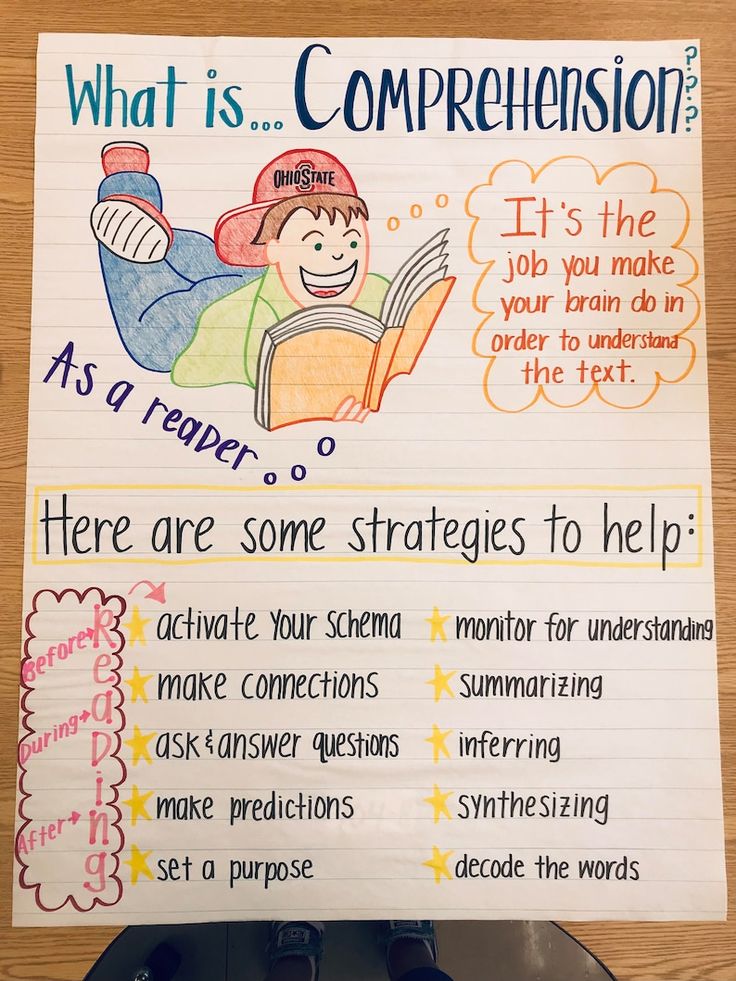 What is... Comprehension???
OHIO STATE
It's the
job you make
your brain do in
order to understand
the text.
As a reader...
Here are some strategies to help:
Before→
During→
After→
Reading
activate your schema
make connections
ask & answer questions
make predictions
set a purpose
monitor for understanding
summarizing
inferring
synthesizing
decode the words